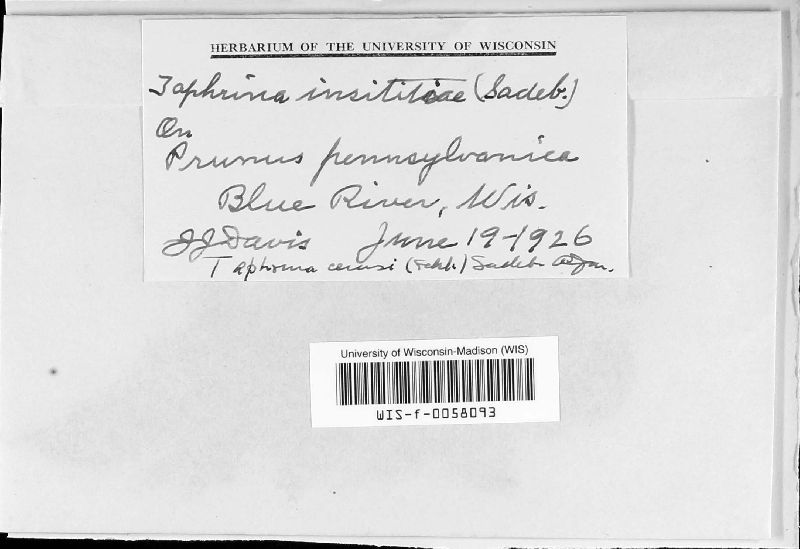 HERBARIUM OF THE UNIVERSITY OF WISCONSIN
Taphrina insititiae (Sadeb.)
On
Prunus pennsylvanica
Blue River, Wis.
JJ Davis June 19-1926
Taphrina cerasi (Fckl.) Sadeb.
University of Wisconsin-Madison (WIS)
WIS-f-0058093